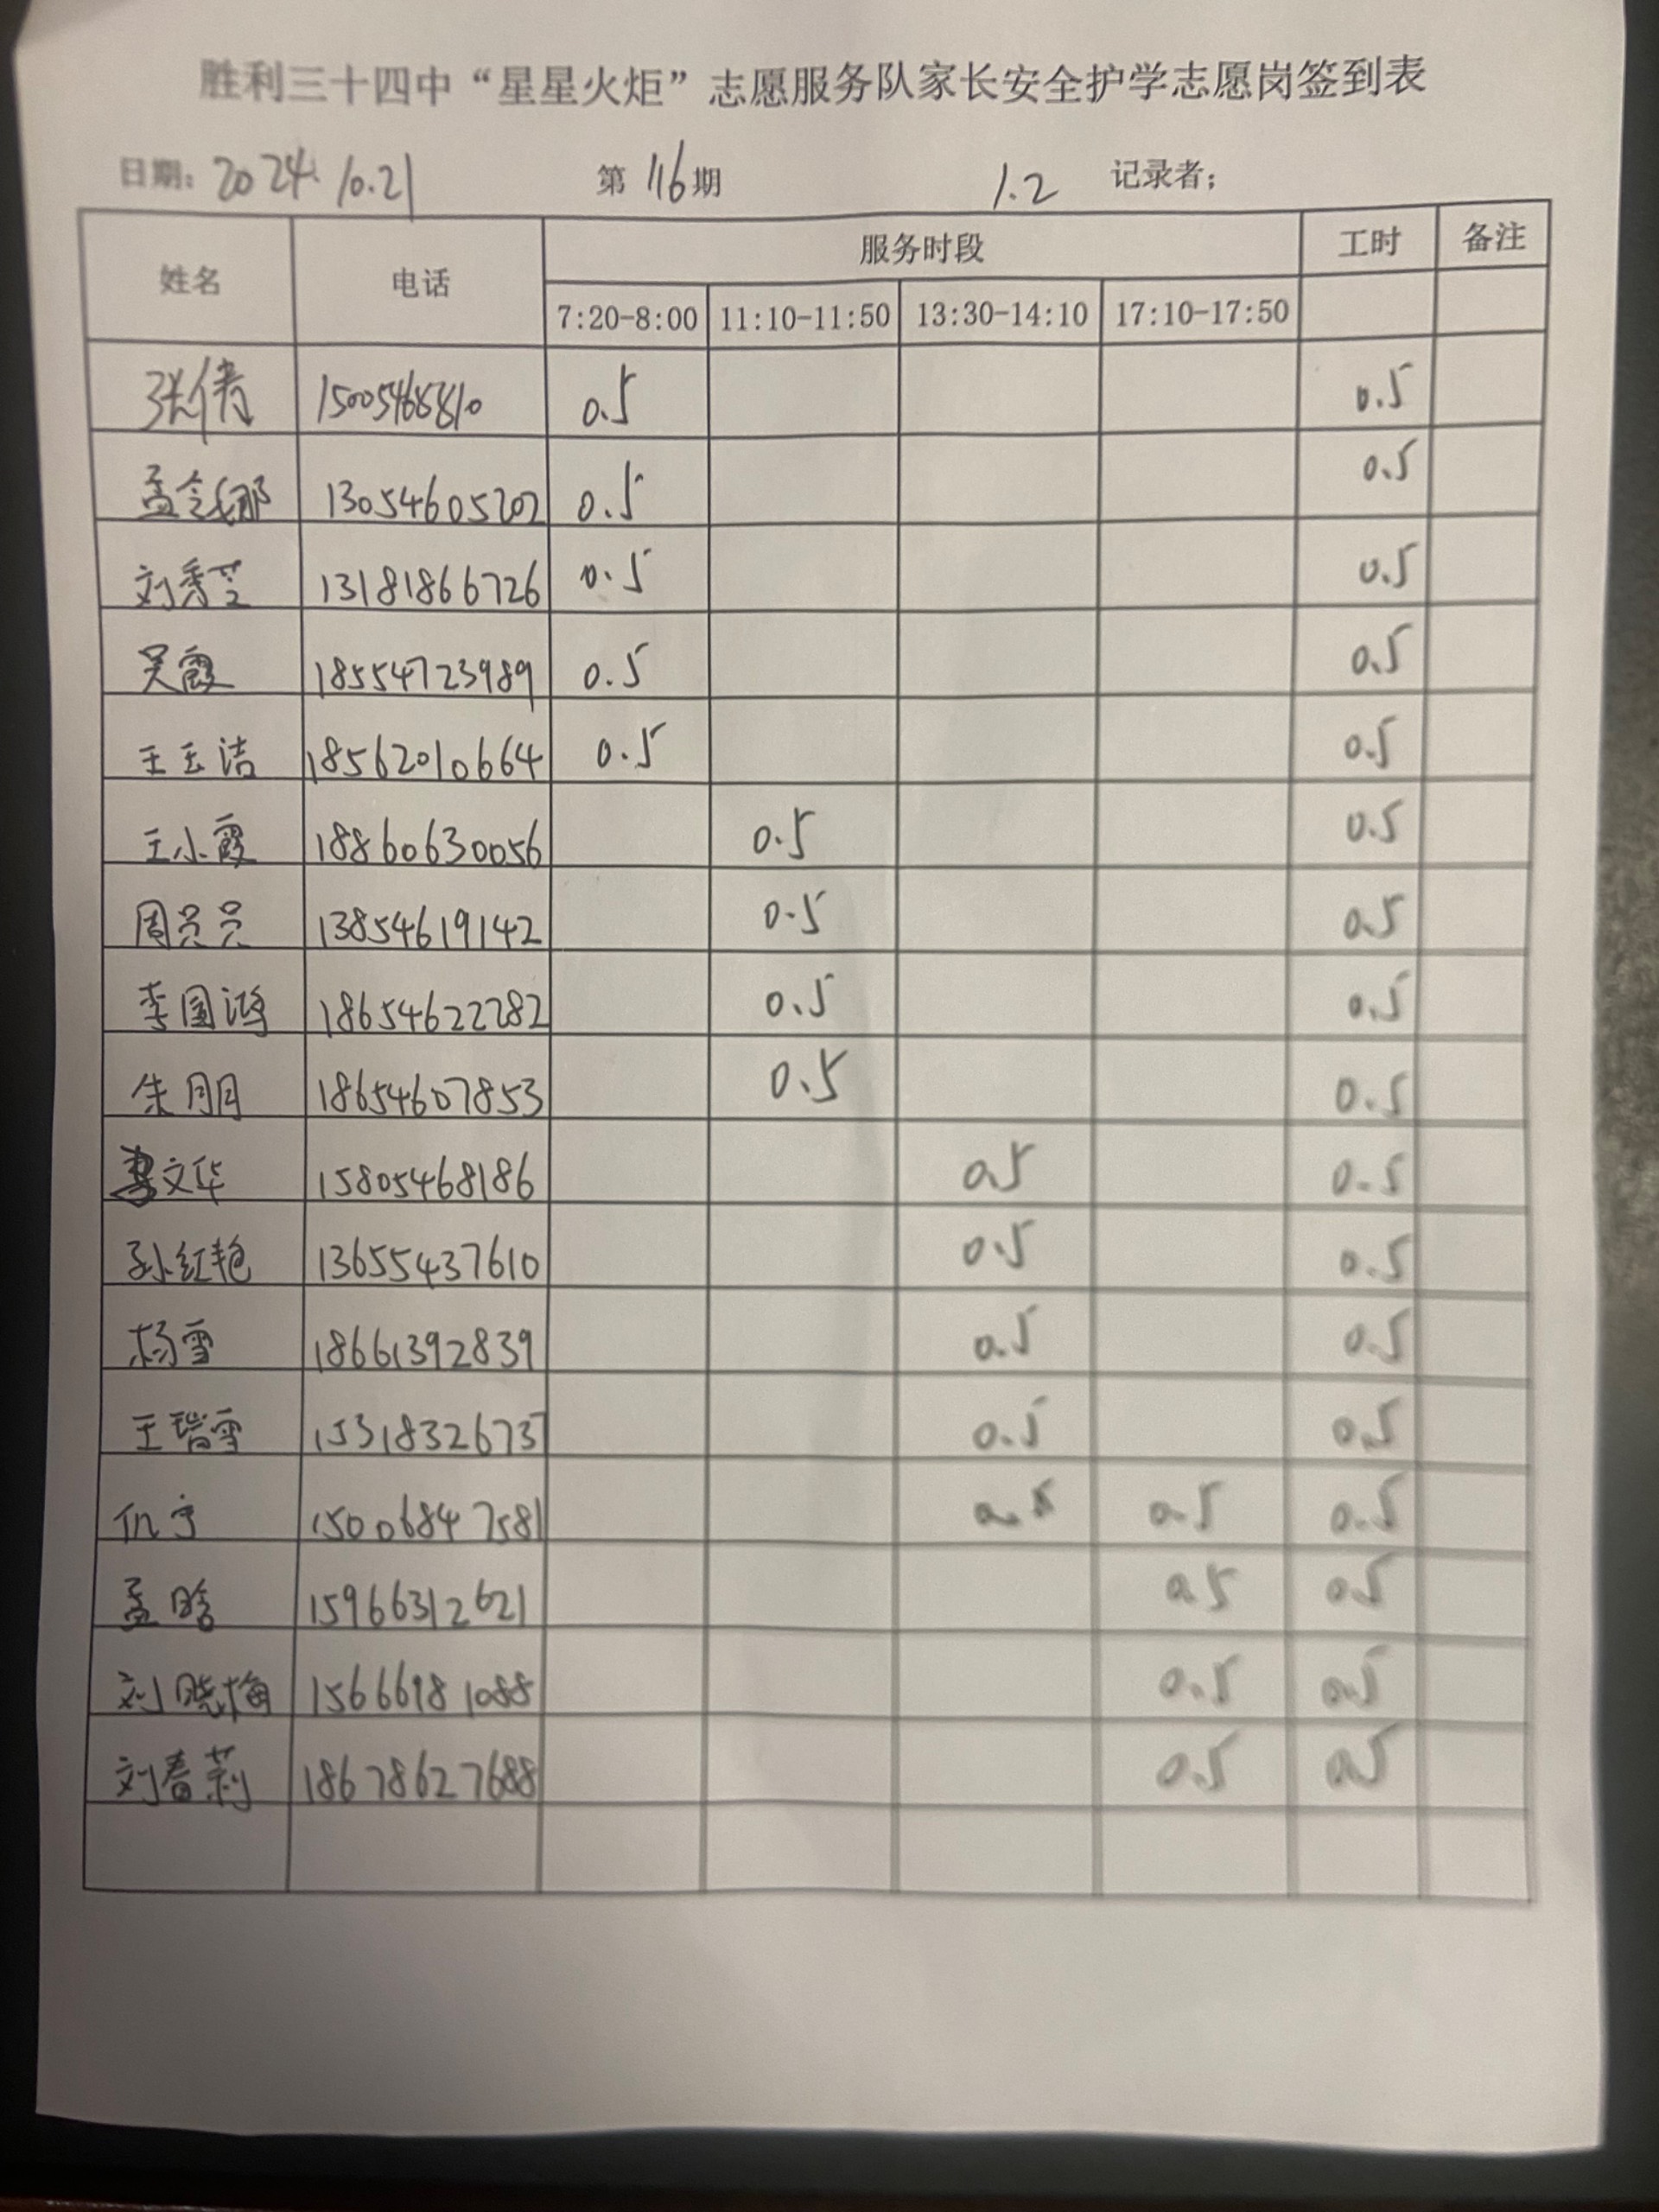 胜利三十四中“星星火炬”志愿服务队家长安全护学志愿岗签到表
日期: 2024.10.21 第116期 1.2 记录者;
姓名 电话 服务时段 工时 备注
7:20-8:00 11:10-11:50 13:30-14:10 17:10-17:50
张倩 15005468810 0.5 0.5
孟令娜 13054605202 0.5 0.5
刘秀芝 13181866726 0.5 0.5
吴霞 18554723989 0.5 0.5
王玉洁 18562010664 0.5 0.5
王小霞 18860630056 0.5 0.5
周员员 13854619142 0.5 0.5
李国鸿 18654622282 0.5 0.5
朱月月 18654607853 0.5 0.5
文华 15805468186 0.5 0.5
孙红艳 13655437610 0.5 0.5
杨雪 18661392839 0.5 0.5
王瑞雪 15318326737 0.5 0.5
仉宁 15006847581 0.5 0.5
孟晗 15966312621 0.5 0.5
刘晓梅 15666981088 0.5 0.5
刘春莉 18678627688 0.5 0.5